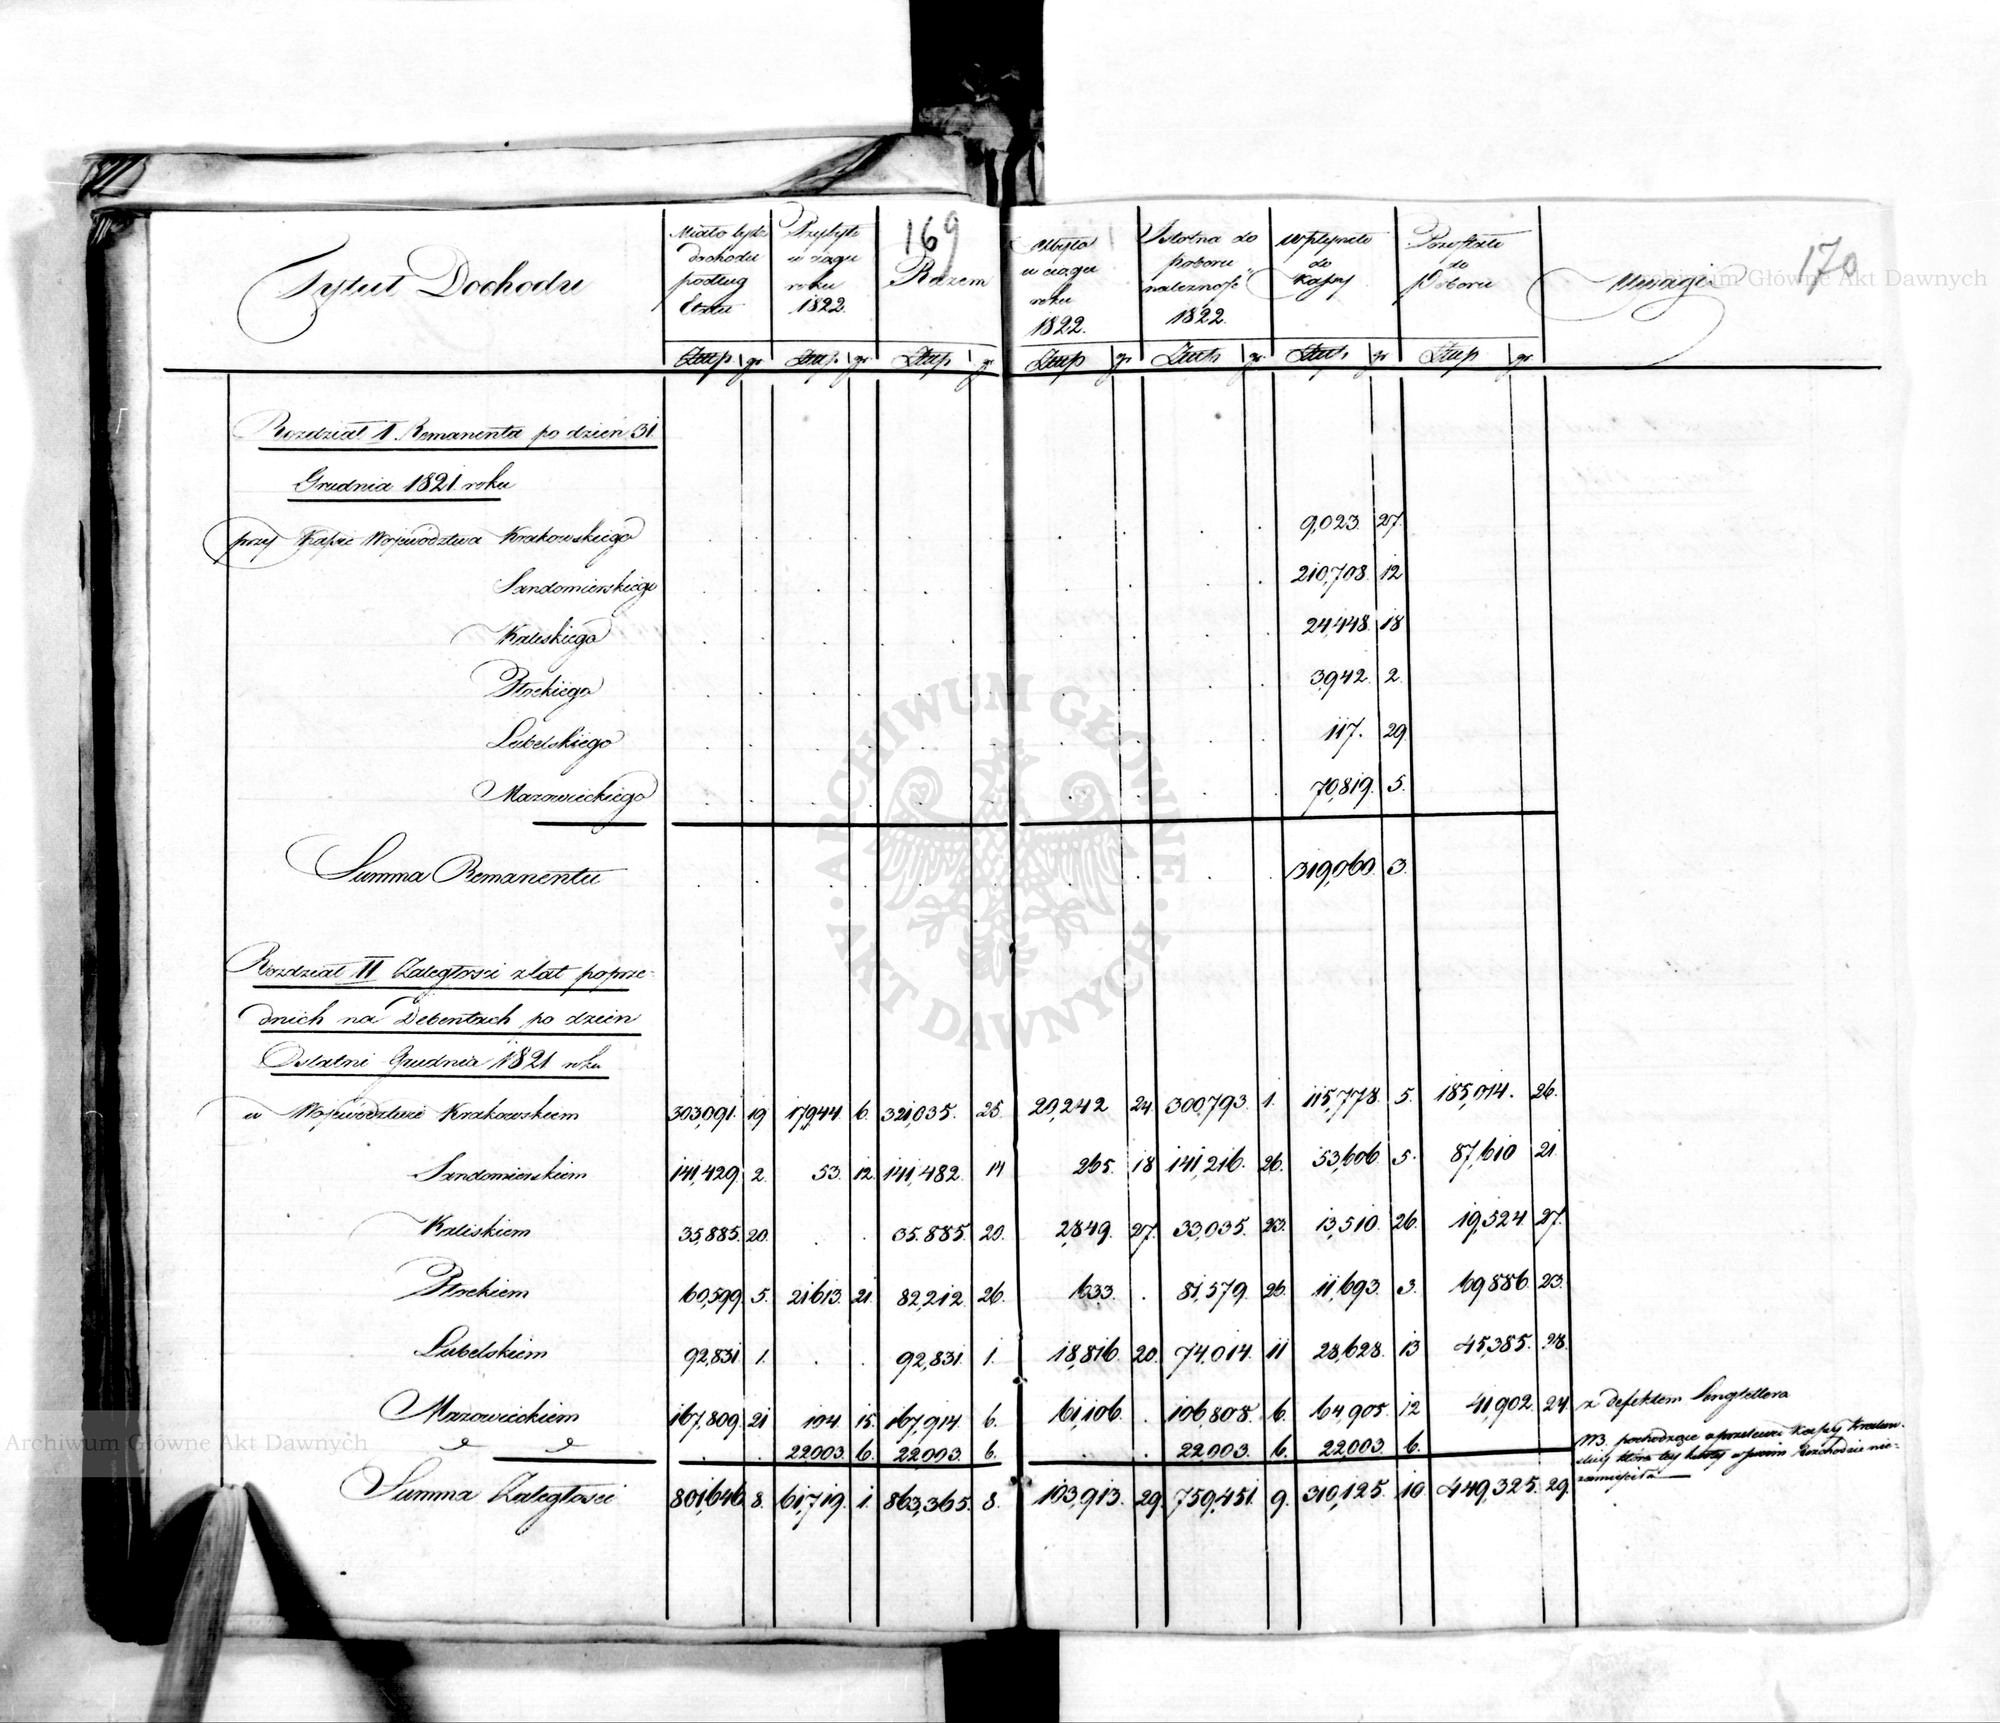 169
170
Tytuł Dochodu
Miało bydź dochodu podług Etatu
Przybyło w ciągu roku 1822.
Razem
Ubyło w ciągu roku 1822.
Istotna do poboru należność 1822.
Wpłynęło do Kassy
Pozostało do Poboru
Uwagi
Złtp gr Złtp gr Złtp gr Złtp gr Złtp gr Złtp gr Złtp gr
Rozdział I. Remanenta po dzień 31
Grudnia 1821 roku
przy Kassie Województwa Krakowskiego 9,023. 27.
Sandomierskiego 210,708. 12
Kaliskiego 24,448. 18
Płockiego 3,942. 2.
Lubelskiego 117. 29.
Mazowieckiego 70,819. 5.
Summa Remanentu 319,060. 3.
Rozdział II Zaległości z lat poprze-
dnich na Debentach po dzień
Ostatni Grudnia 1821 roku
w Województwie Krakowskiem 303,091. 19 17,944. 6. 321,035. 25. 20,242 24. 300,793. 1. 115,778. 5. 185,014. 26.
Sandomierskiem 141,429. 2. 53. 12 141,482. 14 265. 18 141,216. 26. 53,606. 5. 87,610 21.
Kaliskiem 35,885. 20. . . 35,885. 20. 2,849. 27. 33,035. 23. 13,510. 26. 19,524. 27.
Płockiem 60,599. 5. 21613. 21. 82,212. 26. 633. . 81,579. 26. 11,693. 3. 69,886. 23.
Lubelskiem 92,831 1. . . 92,831. 1. 18,816. 20. 74,014. 11 28,628. 13 45,385. 28.
Mazowieckiem 167,809. 21 104. 15. 167,914. 6. 61,106. . 106,808. 6. 64,905. 12 41,902. 24 z defektem
. . 22003. 6. 22003. 6. . . 22003. 6. 22,003. 6. NB. pochodzące
Summa Zaległości 801,646. 8. 61,719. 1. 863,365. 8. 103,913. 29. 759,451. 9. 310,125. 10. 449,325. 29.
ARCHIWUM GŁÓWNE AKT DAWNYCH
Archiwum Główne Akt Dawnych
Archiwum Główne Akt Dawnych